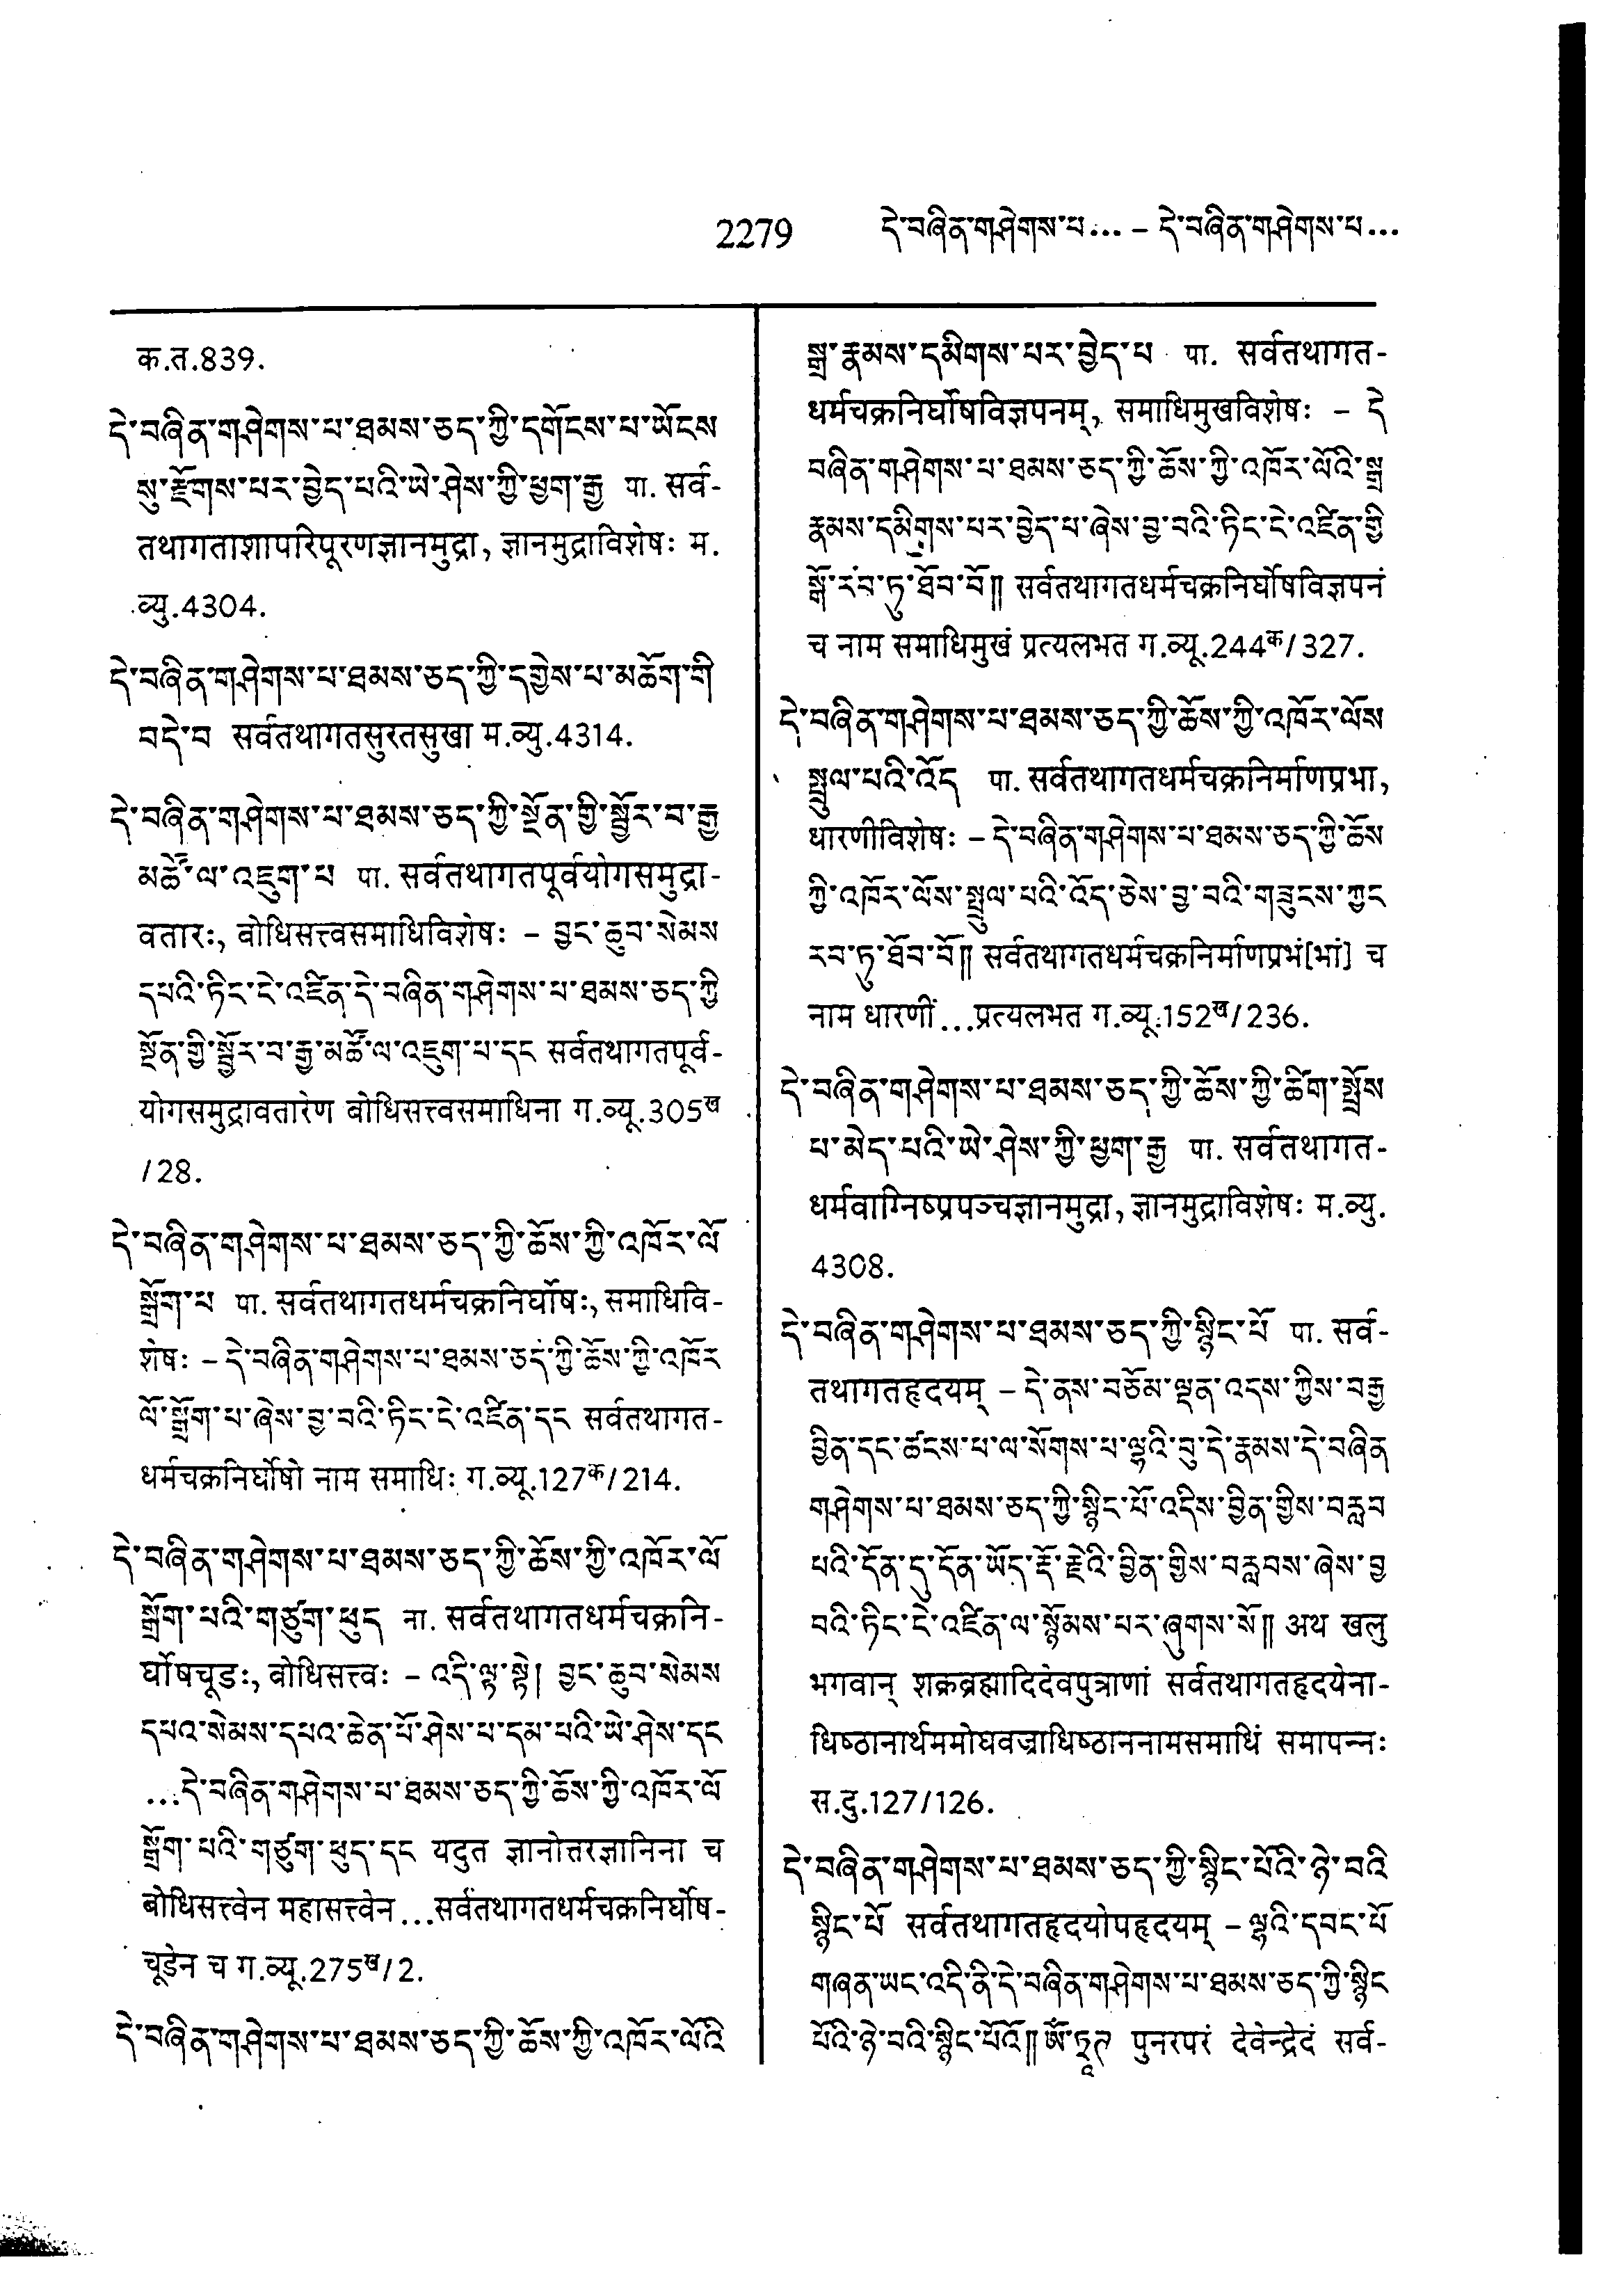 2279 དེ་བཞིན་གཤེགས་པ... – དེ་བཞིན་གཤེགས་པ...
क.त.839.
དེ་བཞིན་གཤེགས་པ་ཐམས་ཅད་ཀྱི་དགོངས་པ་ཡོངས
སུ་རྫོགས་པར་བྱེད་པའི་ཡེ་ཤེས་ཀྱི་ཕྱག་རྒྱ पा. सर्व-
तथागताशापरिपूरणज्ञानमुद्रा, ज्ञानमुद्राविशेषः म.
व्यु.4304.
དེ་བཞིན་གཤེགས་པ་ཐམས་ཅད་ཀྱི་དགྱེས་པ་མཆོག་གི
བདེ་བ सर्वतथागतसुरतसुखा म.व्यु.4314.
དེ་བཞིན་གཤེགས་པ་ཐམས་ཅད་ཀྱི་སྔོན་གྱི་སྦྱོར་བ་རྒྱ
མཚོ་ལ་འཇུག་པ पा. सर्वतथागतपूर्वयोगसमुद्रा-
वतारः, बोधिसत्त्वसमाधिविशेषः – བྱང་ཆུབ་སེམས
དཔའི་ཏིང་ངེ་འཛིན་དེ་བཞིན་གཤེགས་པ་ཐམས་ཅད་ཀྱི
སྔོན་གྱི་སྦྱོར་བ་རྒྱ་མཚོ་ལ་འཇུག་པ་དང सर्वतथागतपूर्व-
योगसमुद्रावतारेण बोधिसत्त्वसमाधिना ग.व्यू.305ख
/28.
དེ་བཞིན་གཤེགས་པ་ཐམས་ཅད་ཀྱི་ཆོས་ཀྱི་འཁོར་ལོ
སྒྲོག་པ पा. सर्वतथागतधर्मचक्रनिर्घोषः, समाधिवि-
शेषः – དེ་བཞིན་གཤེགས་པ་ཐམས་ཅད་ཀྱི་ཆོས་ཀྱི་འཁོར
ལོ་སྒྲོག་པ་ཞེས་བྱ་བའི་ཏིང་ངེ་འཛིན་དང सर्वतथागत-
धर्मचक्रनिर्घोषो नाम समाधिः ग.व्यू.127क/214.
དེ་བཞིན་གཤེགས་པ་ཐམས་ཅད་ཀྱི་ཆོས་ཀྱི་འཁོར་ལོ
སྒྲོག་པའི་གཙུག་ཕུད ना. सर्वतथागतधर्मचक्रनि-
र्घोषचूडः, बोधिसत्त्वः – འདི་ལྟ་སྟེ། བྱང་ཆུབ་སེམས
དཔའ་སེམས་དཔའ་ཆེན་པོ་ཤེས་པ་དམ་པའི་ཡེ་ཤེས་དང
...དེ་བཞིན་གཤེགས་པ་ཐམས་ཅད་ཀྱི་ཆོས་ཀྱི་འཁོར་ལོ
སྒྲོག་པའི་གཙུག་ཕུད་དང यदुत ज्ञानोत्तरज्ञानिना च
बोधिसत्त्वेन महासत्त्वेन...सर्वतथागतधर्मचक्रनिर्घोष-
चूडेन च ग.व्यू.275ख/2.
དེ་བཞིན་གཤེགས་པ་ཐམས་ཅད་ཀྱི་ཆོས་ཀྱི་འཁོར་ལོའི
སྒྲ་རྣམས་དམིགས་པར་བྱེད་པ पा. सर्वतथागत-
धर्मचक्रनिर्घोषविज्ञपनम्, समाधिमुखविशेषः – དེ
བཞིན་གཤེགས་པ་ཐམས་ཅད་ཀྱི་ཆོས་ཀྱི་འཁོར་ལོའི་སྒྲ
རྣམས་དམིགས་པར་བྱེད་པ་ཞེས་བྱ་བའི་ཏིང་ངེ་འཛིན་གྱི
སྒོ་རབ་ཏུ་ཐོབ་བོ།། सर्वतथागतधर्मचक्रनिर्घोषविज्ञपनं
च नाम समाधिमुखं प्रत्यलभत ग.व्यू.244क/327.
དེ་བཞིན་གཤེགས་པ་ཐམས་ཅད་ཀྱི་ཆོས་ཀྱི་འཁོར་ལོས
སྤྲུལ་པའི་འོད पा. सर्वतथागतधर्मचक्रनिर्माणप्रभा,
धारणीविशेषः – དེ་བཞིན་གཤེགས་པ་ཐམས་ཅད་ཀྱི་ཆོས
ཀྱི་འཁོར་ལོས་སྤྲུལ་པའི་འོད་ཅེས་བྱ་བའི་གཟུངས་ཀྱང
རབ་ཏུ་ཐོབ་བོ།། सर्वतथागतधर्मचक्रनिर्माणप्रभं[भां] च
नाम धारणीं...प्रत्यलभत ग.व्यू.152ख/236.
དེ་བཞིན་གཤེགས་པ་ཐམས་ཅད་ཀྱི་ཆོས་ཀྱི་ཚིག་སྤྲོས
པ་མེད་པའི་ཡེ་ཤེས་ཀྱི་ཕྱག་རྒྱ पा. सर्वतथागत-
धर्मवाग्निष्प्रपञ्चज्ञानमुद्रा, ज्ञानमुद्राविशेषः म.व्यु.
4308.
དེ་བཞིན་གཤེགས་པ་ཐམས་ཅད་ཀྱི་སྙིང་པོ पा. सर्व-
तथागतहृदयम् – དེ་ནས་བཅོམ་ལྡན་འདས་ཀྱིས་བརྒྱ
བྱིན་དང་ཚངས་པ་ལ་སོགས་པ་ལྷའི་བུ་དེ་རྣམས་དེ་བཞིན
གཤེགས་པ་ཐམས་ཅད་ཀྱི་སྙིང་པོ་འདིས་བྱིན་གྱིས་བརླབ
པའི་དོན་དུ་དོན་ཡོད་རྡོ་རྗེའི་བྱིན་གྱིས་བརླབས་ཞེས་བྱ
བའི་ཏིང་ངེ་འཛིན་ལ་སྙོམས་པར་ཞུགས་སོ།། अथ खलु
भगवान् शक्रब्रह्मादिदेवपुत्राणां सर्वतथागतहृदयेना-
धिष्ठानार्थममोघवज्राधिष्ठाननामसमाधिं समापन्नः
स.दु.127/126.
དེ་བཞིན་གཤེགས་པ་ཐམས་ཅད་ཀྱི་སྙིང་པོའི་ཉེ་བའི
སྙིང་པོ सर्वतथागतहृदयोपहृदयम् – ལྷའི་དབང་པོ
གཞན་ཡང་འདི་ནི་དེ་བཞིན་གཤེགས་པ་ཐམས་ཅད་ཀྱི་སྙིང
པོའི་ཉེ་བའི་སྙིང་པོའོ།། ༀ་ཏྲཱ༹ पुनरपरं देवेन्द्रेदं सर्व-